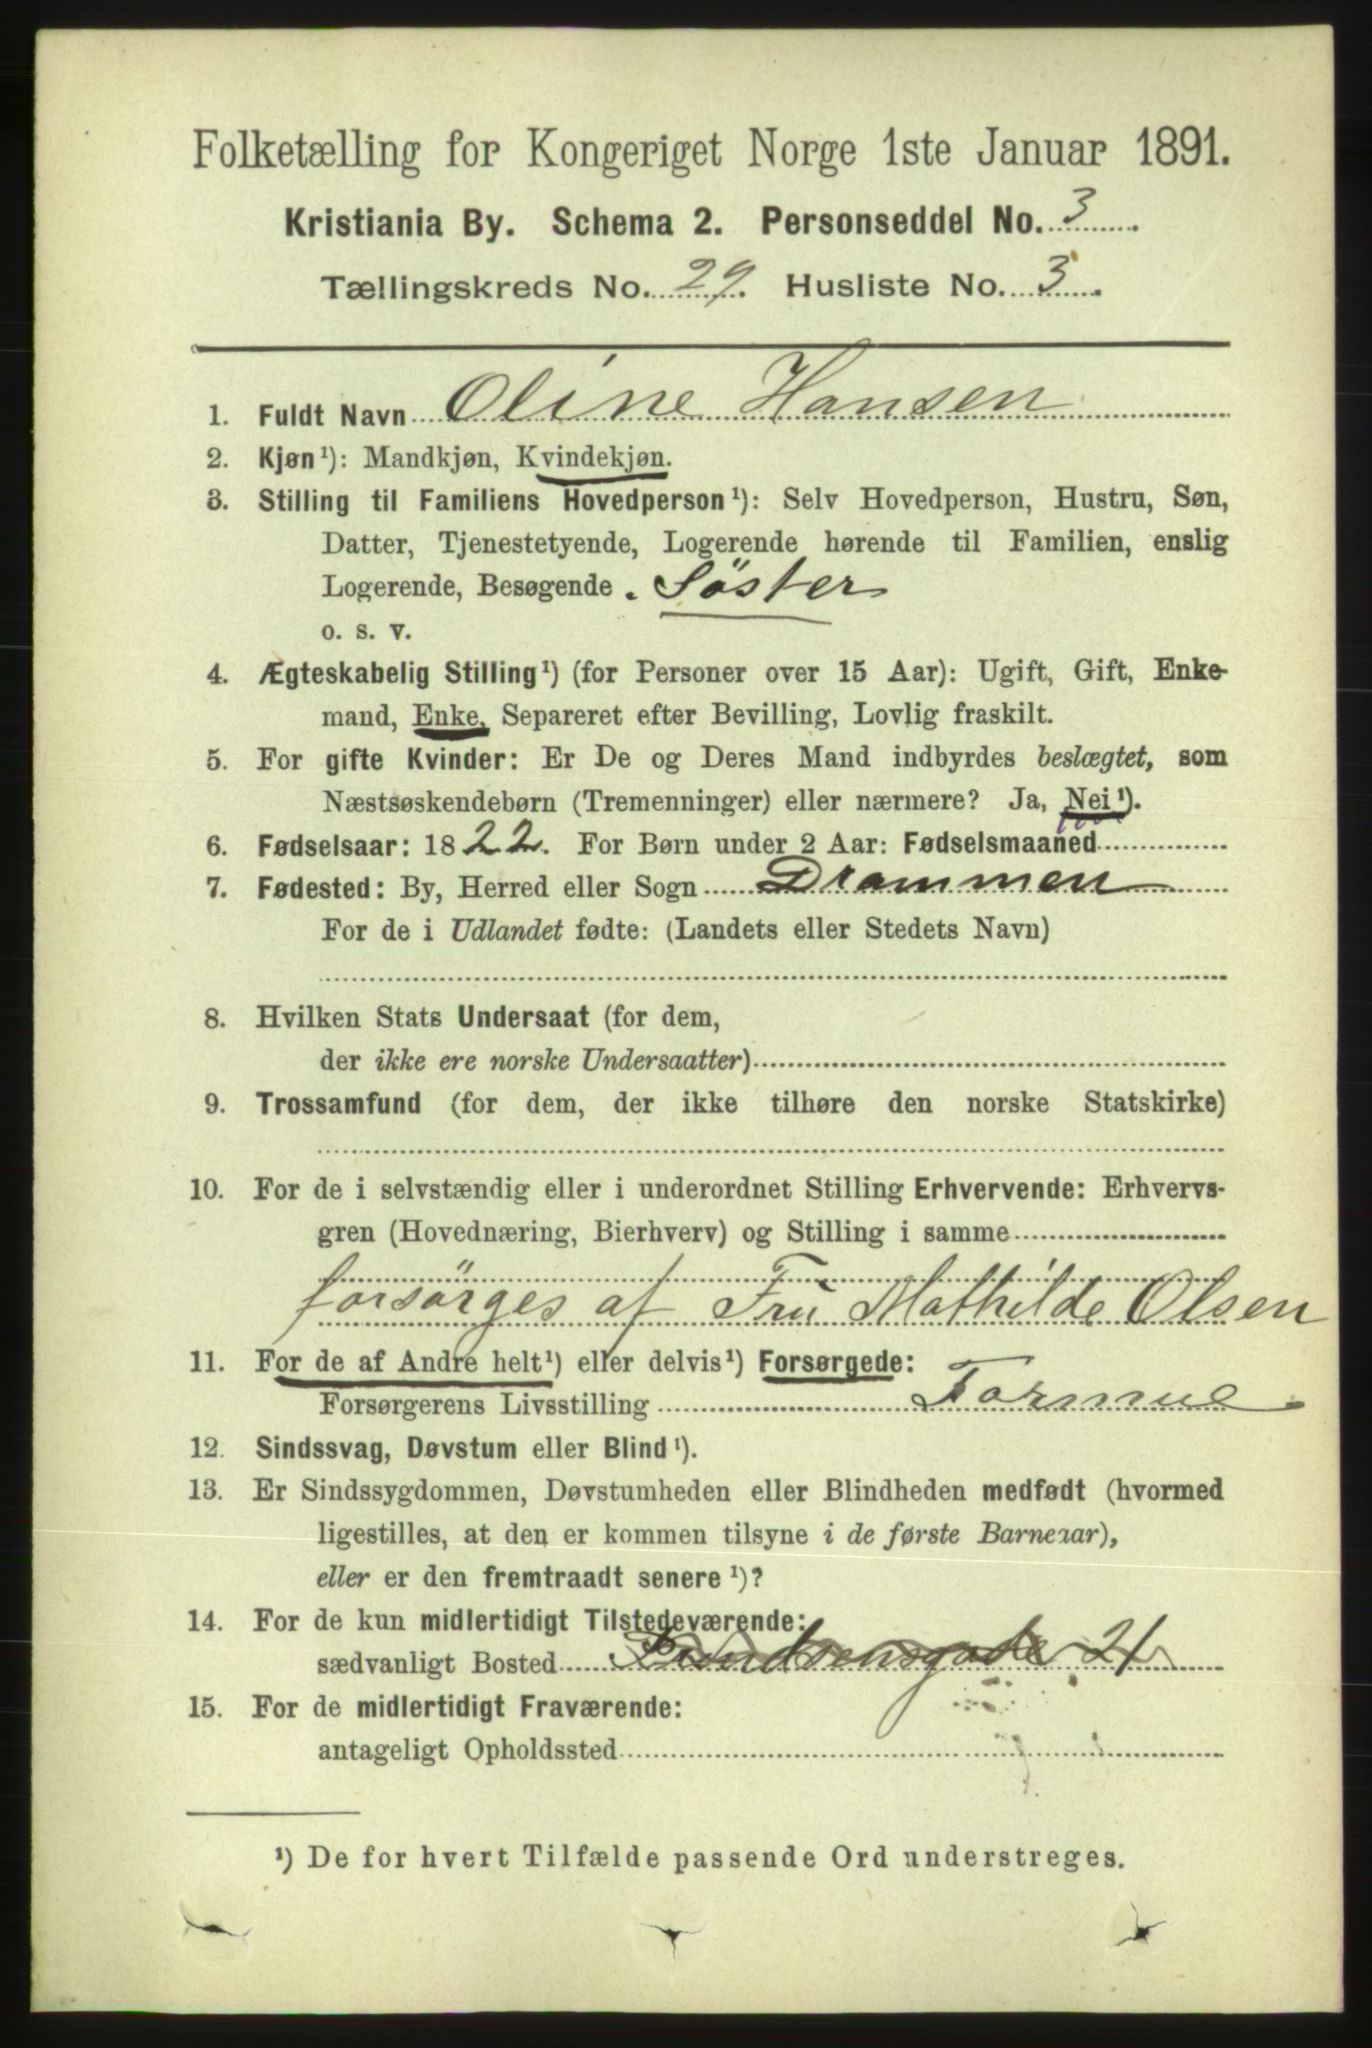 Folketælling for Kongeriget Norge 1ste Januar 1891.
Kristiania By. Schema 2. Personseddel No. 3
Tællingskreds No. 29. Husliste No. 3.
1. Fuldt Navn Oline Hansen
2. Kjøn¹): Mandkjøn, Kvindekjøn.
3. Stilling til Familiens Hovedperson¹): Selv Hovedperson, Hustru, Søn,
Datter, Tjenestetyende, Logerende hørende til Familien, enslig
Logerende, Besøgende . Söster
o. s. v.
4. Ægteskabelig Stilling¹) (for Personer over 15 Aar): Ugift, Gift, Enke-
mand, Enke, Separeret efter Bevilling, Lovlig fraskilt.
5. For gifte Kvinder: Er De og Deres Mand indbyrdes beslægtet, som
Næstsøskendebørn (Tremenninger) eller nærmere? Ja, Nei¹).
6. Fødselsaar: 1822. For Børn under 2 Aar: Fødselsmaaned
7. Fødested: By, Herred eller Sogn Drammen
For de i Udlandet fødte: (Landets eller Stedets Navn)
8. Hvilken Stats Undersaat (for dem,
der ikke ere norske Undersaatter)
9. Trossamfund (for dem, der ikke tilhøre den norske Statskirke)
10. For de i selvstændig eller i underordnet Stilling Erhvervende: Erhvervs-
gren (Hovednæring, Bierhverv) og Stilling i samme
forsörges af Fru Mathilde Olsen
11. For de af Andre helt¹) eller delvis¹) Forsørgede:
Forsørgerens Livsstilling Formue
12. Sindssvag, Døvstum eller Blind¹).
13. Er Sindssygdommen, Døvstumheden eller Blindheden medfødt (hvormed
ligestilles, at den er kommen tilsyne i de første Barneaar),
eller er den fremtraadt senere¹)?
14. For de kun midlertidigt Tilstedeværende:
sædvanligt Bosted 21
15. For de midlertidigt Fraværende:
antageligt Opholdssted
¹) De for hvert Tilfælde passende Ord understreges.